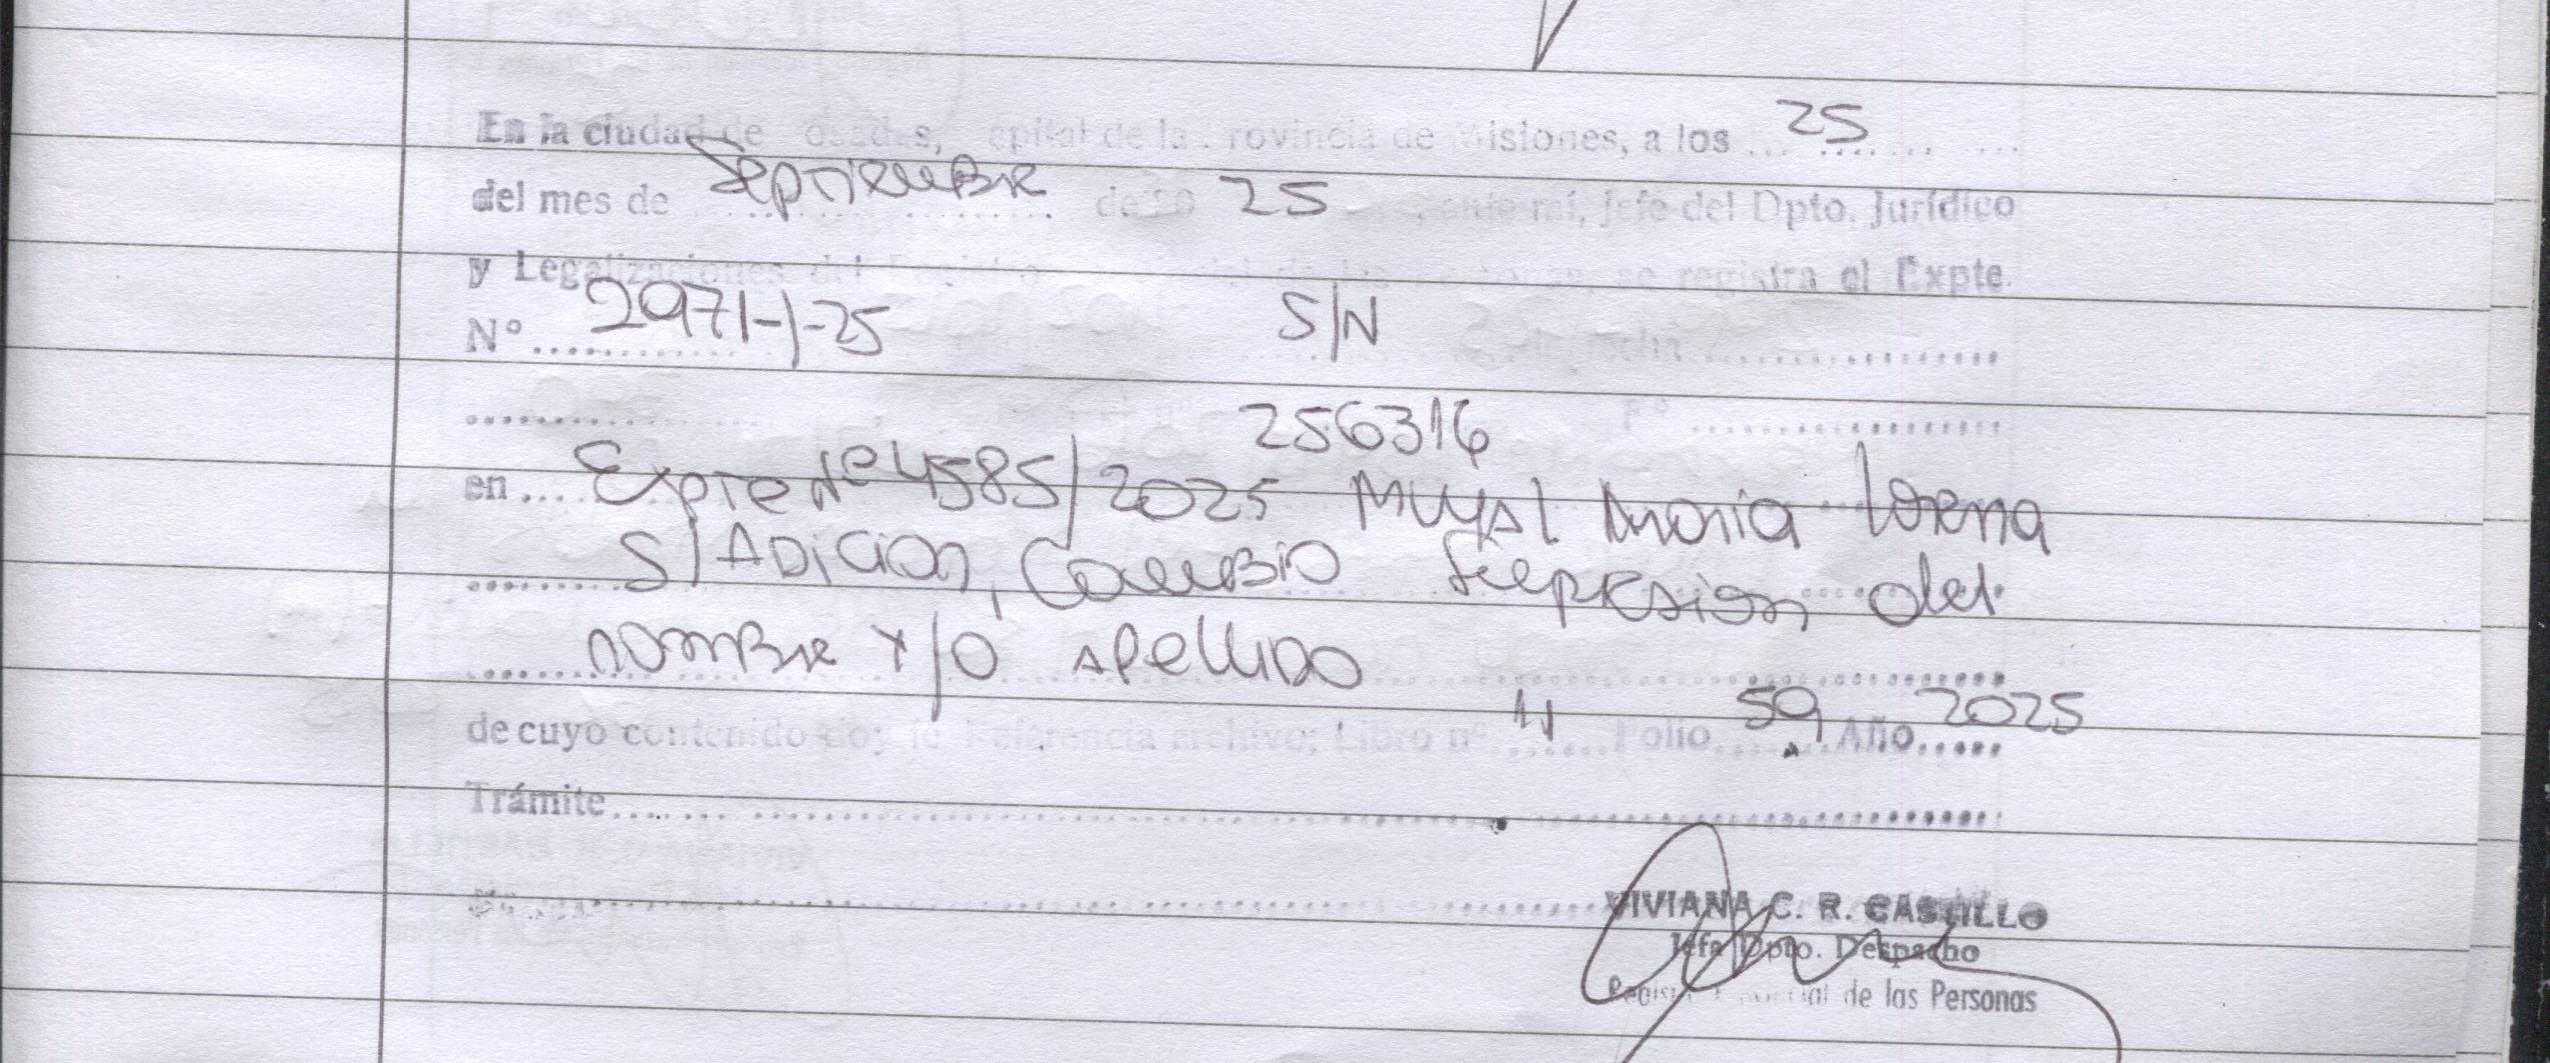 En la ciudad de Posadas, Capital de la Provincia de Misiones, a los ... 25 ...
del mes de Septiembre de 20 25 , ante mí, Jefe del Dpto. Jurídico
y Legalizaciones del se registra el Expte.
N° 2971-1-25 S/N
256316 F°
en Expte N° 4585/2025 Muyal Maria Lorena
S/ Adicion, Cambio Supresion del
nombre y/o Apellido
de cuyo contenido doy fe Referencia archivo; Libro n° 11 Folio 59 Año 2025
Trámite
VIVIANA C. R. CASTILLO
Jefa Dpto. Despacho
Registro Provincial de las Personas